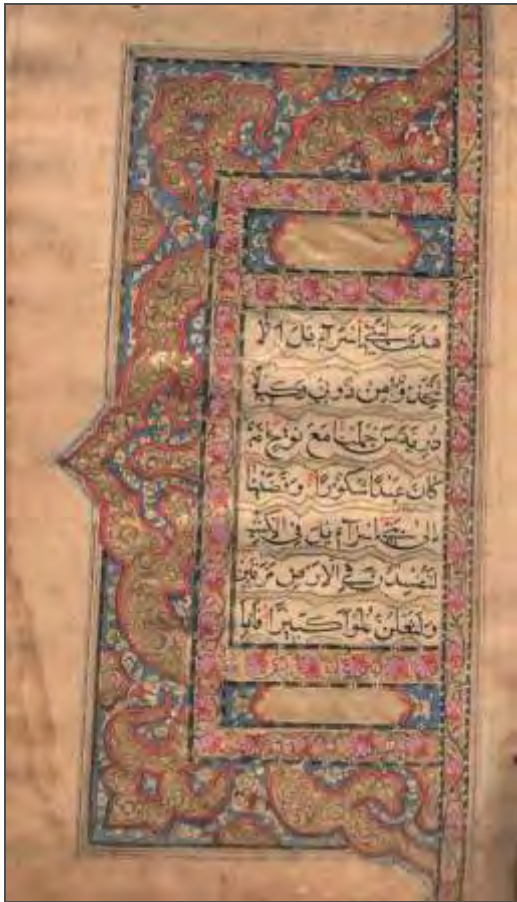 هُدًى لِبَنِي اِسْرَآءِيلَ اَلَّا
تَتَّخِذُوا مِنْ دُونِي وَكِيلًا
ذُرِّيَّةَ مَنْ حَمَلْنَا مَعَ نُوحٍ اِنَّهُ
كَانَ عَبْدًا شَكُورًا وَقَضَيْنَا
اِلَى بَنِي اِسْرَآءِيلَ فِي الْكِتٰبِ
لَتُفْسِدُنَّ فِي الْاَرْضِ مَرَّتَيْنِ
وَلَتَعْلُنَّ عُلُوًّا كَبِيرًا فَاِذَا